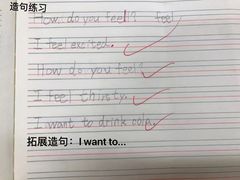 造句练习
How do you feel? feel
I feel excited.
How do you feel?
I feel thirsty.
I want to drink cola.
拓展造句：I want to...